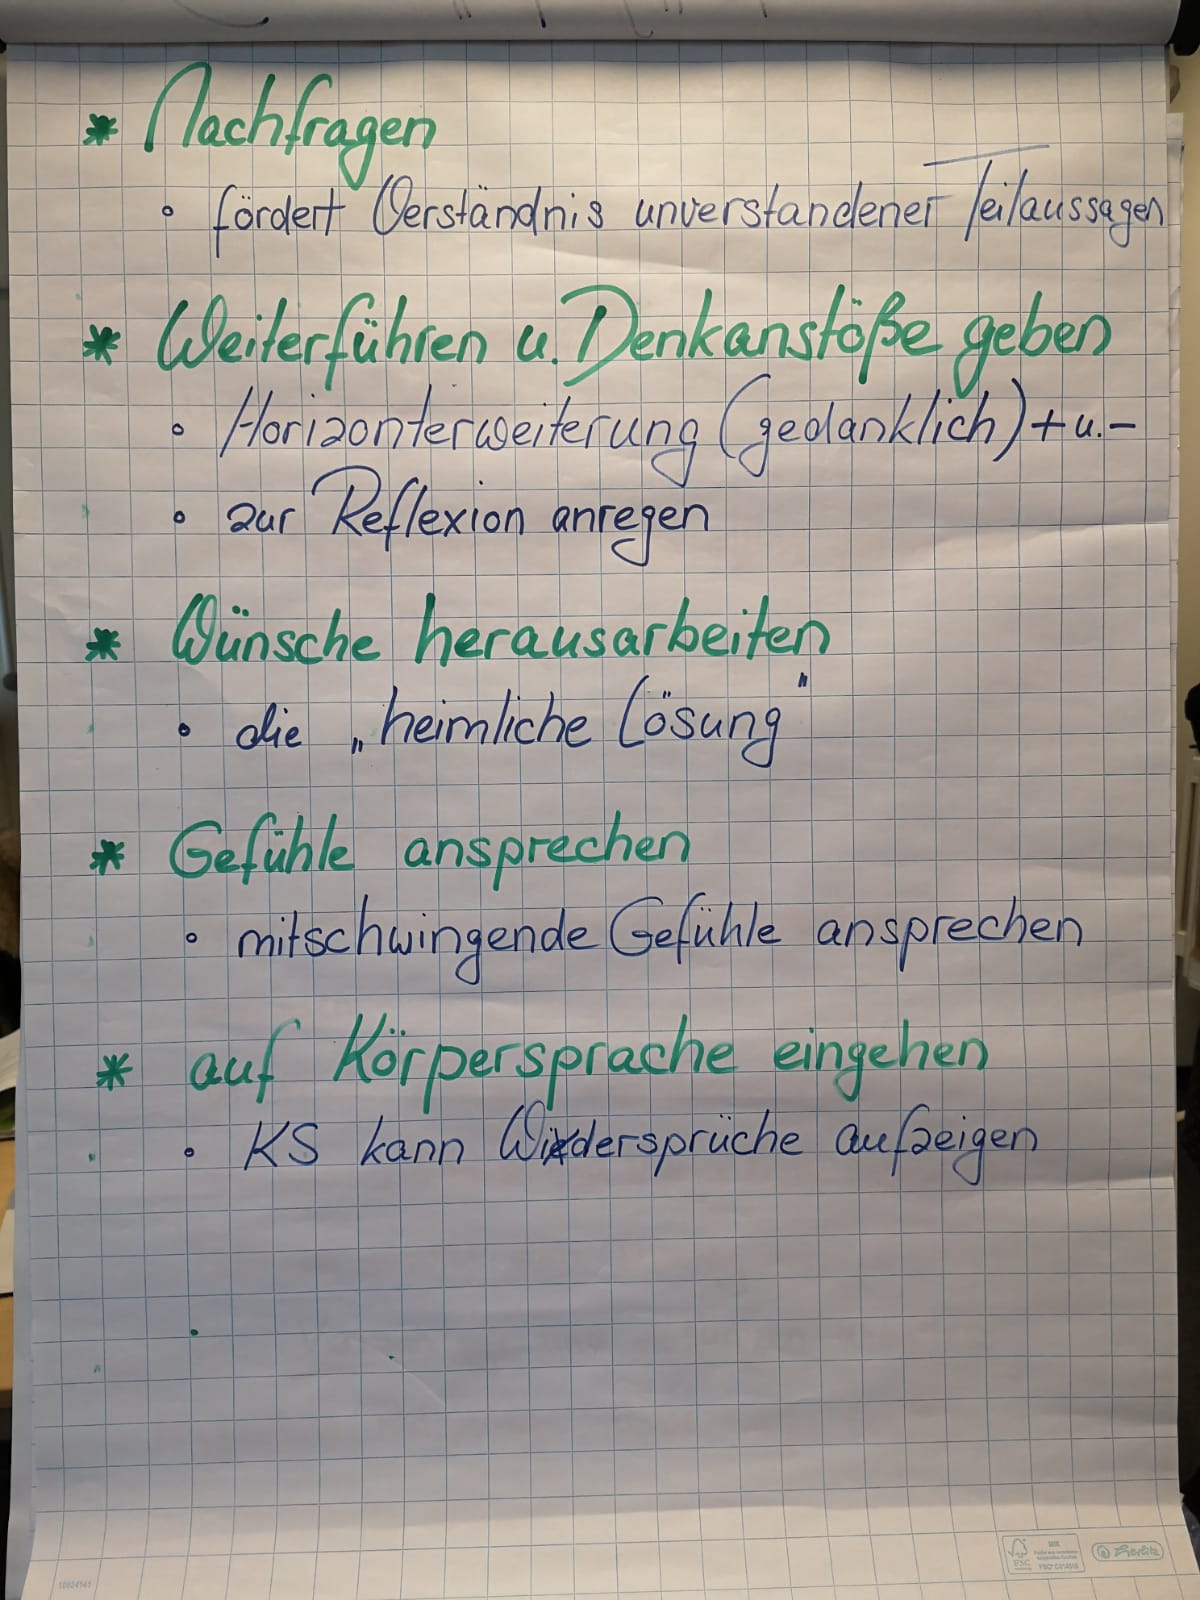 * Nachfragen
◦ fördert Verständnis unverstandener Teilaussagen
* Weiterführen u. Denkanstöße geben
◦ Horizonterweiterung (gedanklich) + u. -
◦ zur Reflexion anregen
* Wünsche herausarbeiten
◦ die „heimliche Lösung"
* Gefühle ansprechen
◦ mitschwingende Gefühle ansprechen
* auf Körpersprache eingehen
◦ KS kann Widersprüche aufzeigen
FSC
Herlitz